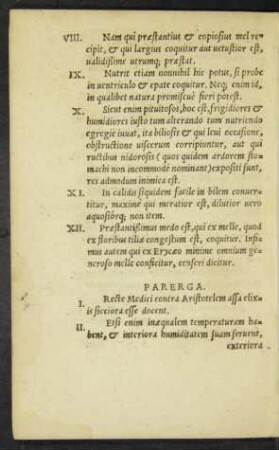 VIII. Nam qui præstantius & copiosius mel re-
cipit, & qui largius coquitur aut uetustior est,
ualidissime utrumq; præstat.
IX. Nutrit etiam nonnihil hic potus, si probe
in uentriculo & epate coquitur. Neq; enim id,
in qualibet natura promiscuè fieri potest.
X. Sicut enim pituitosos, hoc est, frigidiores &
humidiores iusto tum alterando tum nutriendo
egregiè iuuat, ita biliosis & qui leui occasione,
obstructione uiscerum corripiuntur, aut qui
ructibus nidorosis (quos quidem ardorem sto-
machi non incommodè nominant) expositi sunt,
res admodum inimica est.
XI. In calidis siquidem facile in bilem conuer-
titur, maximè qui meratior est, dilutior uero
aquosiorq; non item.
XII. Præstantissimus medo est, qui ex melle, quod
ex floribus tiliæ congestum est, coquitur. Infi-
mus autem qui ex Erycæo minime omnium ge-
neroso melle conficitur, censeri dicitur.
PARERGA.
I. Recte Medici contra Aristotelem assa elix-
is sicciora esse docent.
II. Etsi enim inæqualem temperaturam ha-
bent, & interiora humiditatem suam seruent,
exteriora